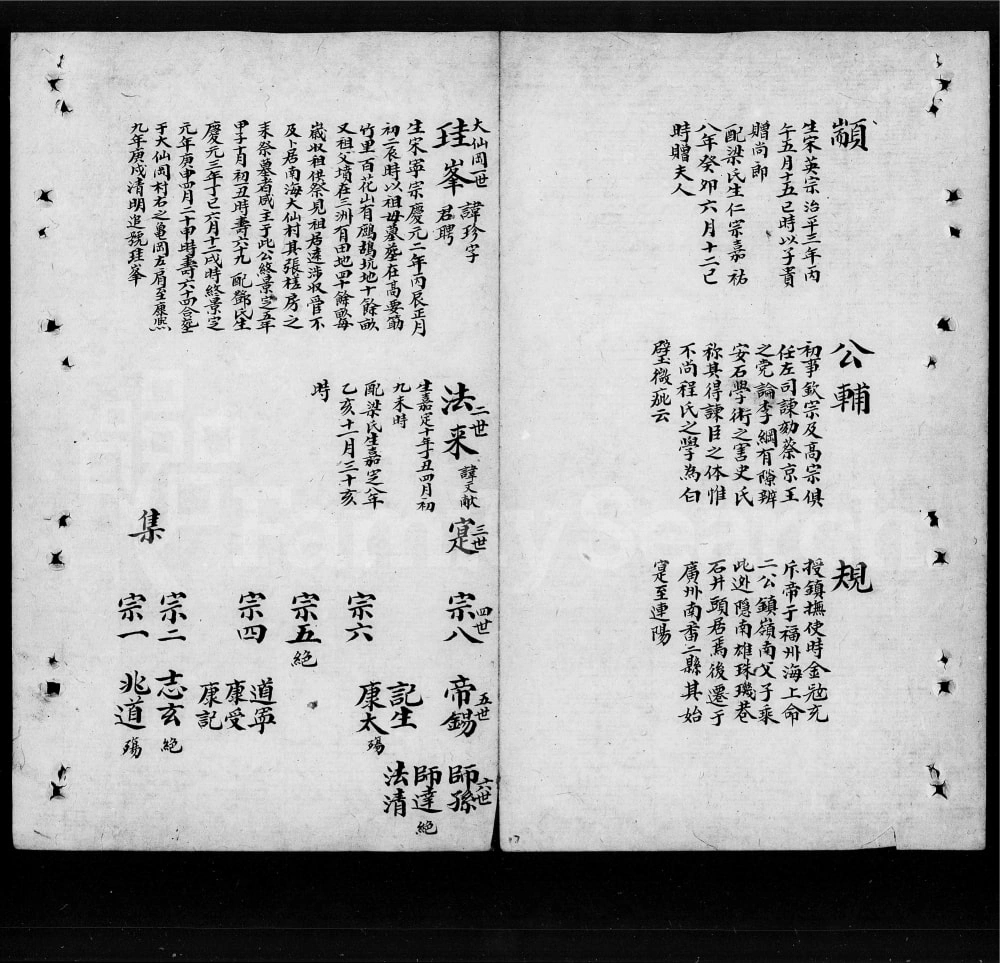 顓
生宋英宗治平三年丙
午五月十五巳時以子貴
贈尚郎
配梁氏生仁宗嘉祐
八年癸卯六月十二巳
時贈夫人
公輔
初事欽宗及高宗俱
任左司諫劾蔡京王
之党論李綱有隙辨
安石學術之害史氏
称其得諫臣之体惟
不尚程氏之學為白
璧微疵云
規
授鎮撫使時金冦充
斥帝于福州海上命
二公鎮嶺南父子乘
此逊隐南雄珠璣巷
石井頭居焉後遷于
廣州南番二縣其始
寔至連陽
大仙岡一世
珪峯 諱珍字君聘
生宋寧宗慶元二年丙辰正月
初二辰時以祖母墓塟在高要筋
竹里百花山有鷓鴣坑地十餘畝
又祖父墳在三洲有田地四十餘畝每
嵗収租供祭見祖居遠涉収管不
及卜居南海大仙村其張槎房之
来祭墓者咸主于此公終景定五年
甲子十月初一丑時壽六十九 配鄧氏生
慶元三年丁巳六月十二戌時終景定
元年庚申四月二十甲時壽六十四合塟
于大仙岡村右之亀岡左肩至康熙
九年庚戌清明追號珪峯
二世
法来 諱文献
生嘉定十年丁丑四月初
九未時
配梁氏生嘉定八年
乙亥十二月三十亥
時
三世
寔
集
四世
宗八
宗六
宗五 絶
宗四
宗二
宗一
五世
帝錫
記生
康太 殤
道寧
康受
康記
志玄 絶
兆道 殤
六世
師孫
師達 絶
法清
FamilySearch